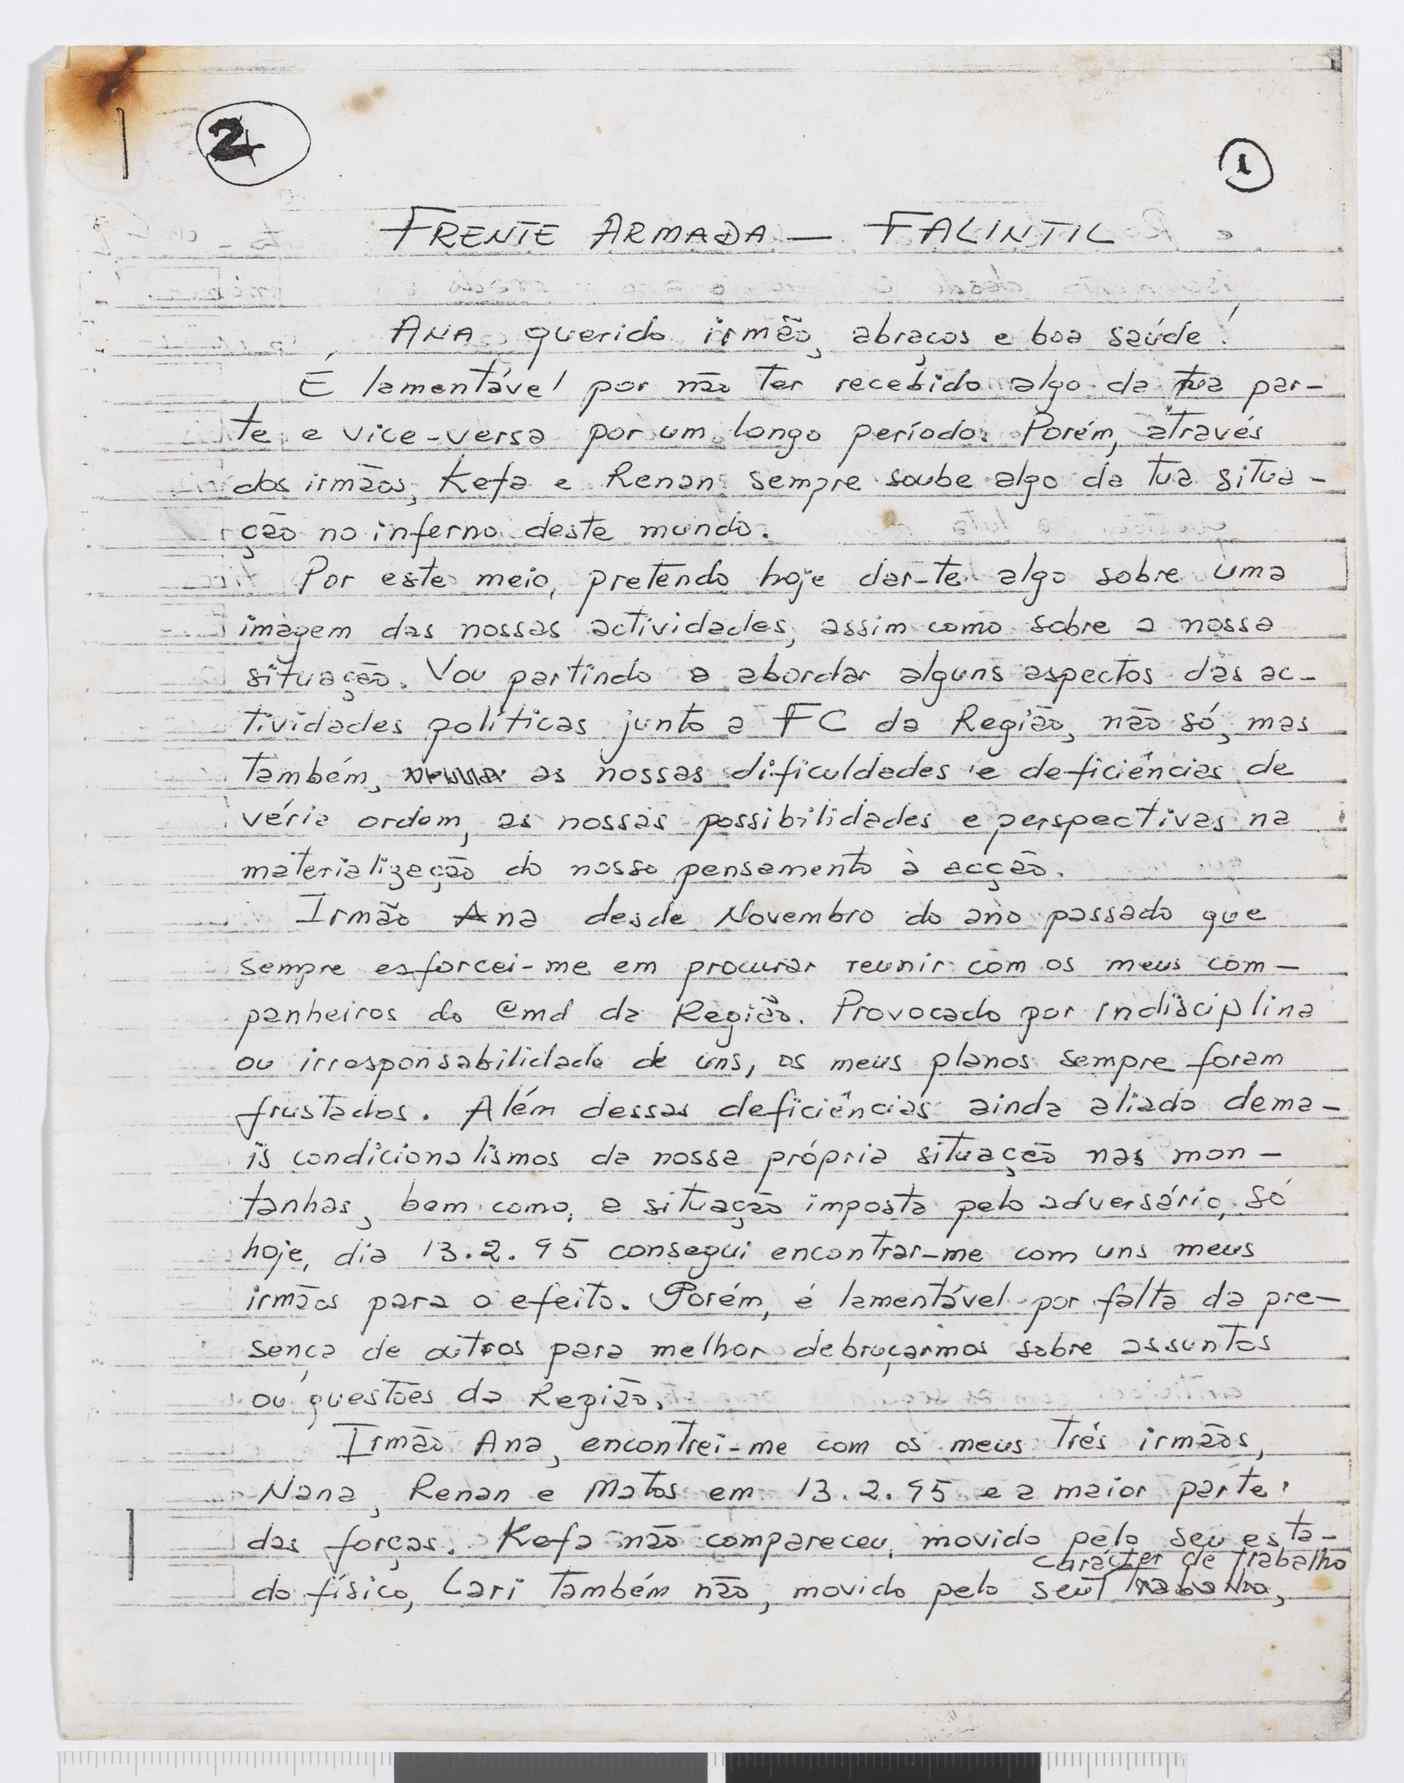 2
1
FRENTE ARMADA — FALINTIL
ANA querido irmão, abraços e boa saúde!
É lamentável por não ter recebido algo da tua par-
te e vice-versa por um longo período. Porém, através
dos irmãos, Kefa e Renan sempre soube algo da tua situa-
ção no inferno deste mundo.
Por este meio, pretendo hoje dar-te algo sobre uma
imagem das nossas actividades, assim como sobre a nossa
situação. Vou partindo a abordar alguns aspectos das ac-
tividades políticas junto a FC da Região, não só, mas
também, as nossas dificuldades e deficiências de
vária ordem, as nossas possibilidades e perspectivas na
materialização do nosso pensamento à acção.
Irmão Ana desde Novembro do ano passado que
sempre esforcei-me em procurar reunir com os meus com-
panheiros do Cmd da Região. Provocado por indisciplina
ou irresponsabilidade de uns, os meus planos sempre foram
frustados. Além dessas deficiências ainda aliado dema-
is condicionalismos da nossa própria situação nas mon-
tanhas, bem como, a situação imposta pelo adversário, só
hoje, dia 13.2.95 consegui encontrar-me com uns meus
irmãos para o efeito. Porém, é lamentável por falta da pre-
sença de outros para melhor debruçarmos sobre assuntos
ou questões da Região.
Irmão Ana, encontrei-me com os meus três irmãos,
Nana, Renan e Matos em 13.2.95 e a maior parte
das forças. Kefa não compareceu, movido pelo seu esta-
do físico, Lari também não, movido pelo seu carácter de trabalho trabalho,